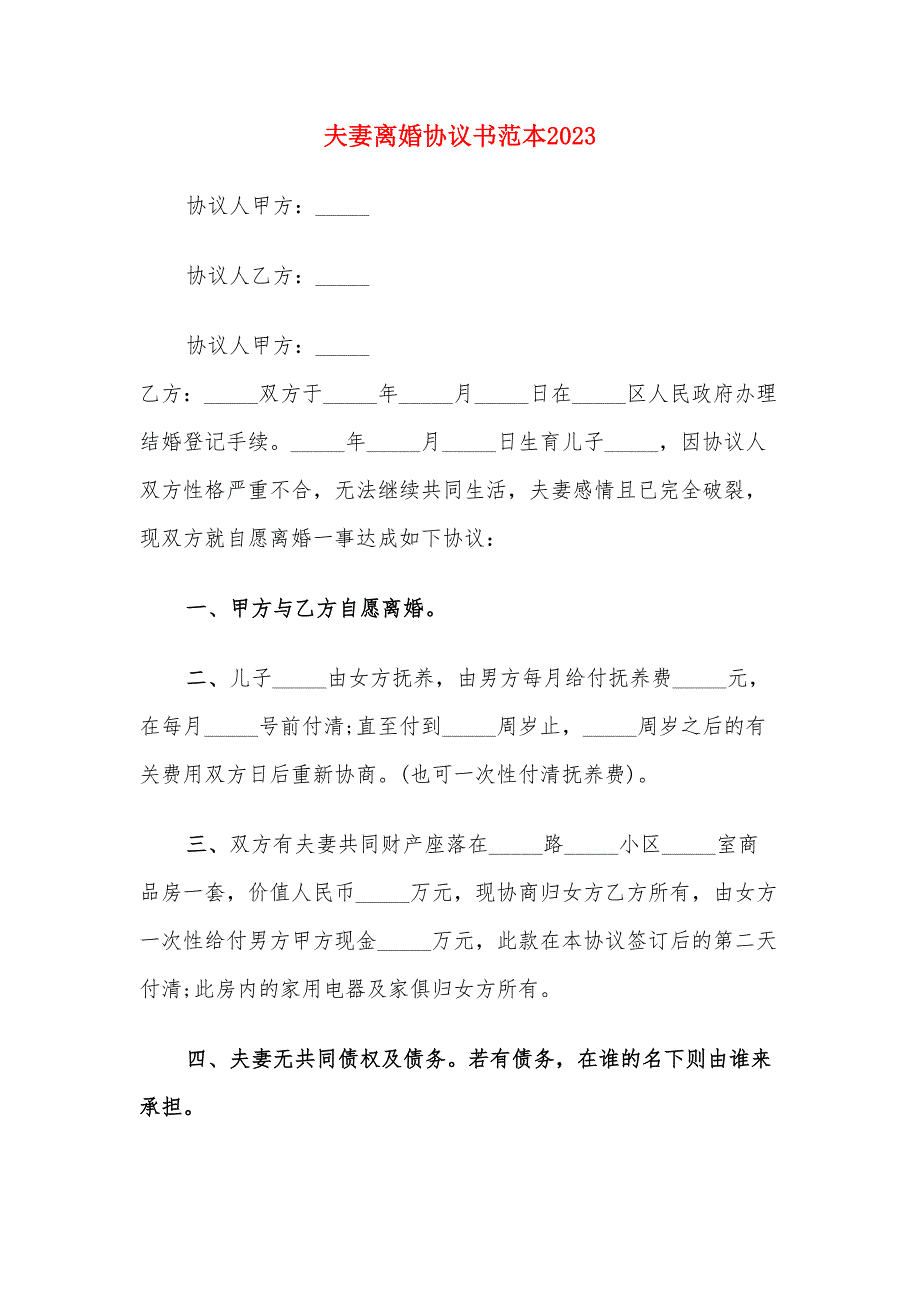 夫妻离婚协议书范本2023
协议人甲方：_____
协议人乙方：_____
协议人甲方：_____
乙方：_____双方于_____年_____月_____日在_____区人民政府办理
结婚登记手续。_____年_____月_____日生育儿子_____，因协议人
双方性格严重不合，无法继续共同生活，夫妻感情且已完全破裂，
现双方就自愿离婚一事达成如下协议：
一、甲方与乙方自愿离婚。
二、儿子_____由女方抚养，由男方每月给付抚养费_____元，
在每月_____号前付清;直至付到_____周岁止，_____周岁之后的有
关费用双方日后重新协商。(也可一次性付清抚养费)。
三、双方有夫妻共同财产座落在_____路_____小区_____室商
品房一套，价值人民币_____万元，现协商归女方乙方所有，由女方
一次性给付男方甲方现金_____万元，此款在本协议签订后的第二天
付清;此房内的家用电器及家俱归女方所有。
四、夫妻无共同债权及债务。若有债务，在谁的名下则由谁来
承担。